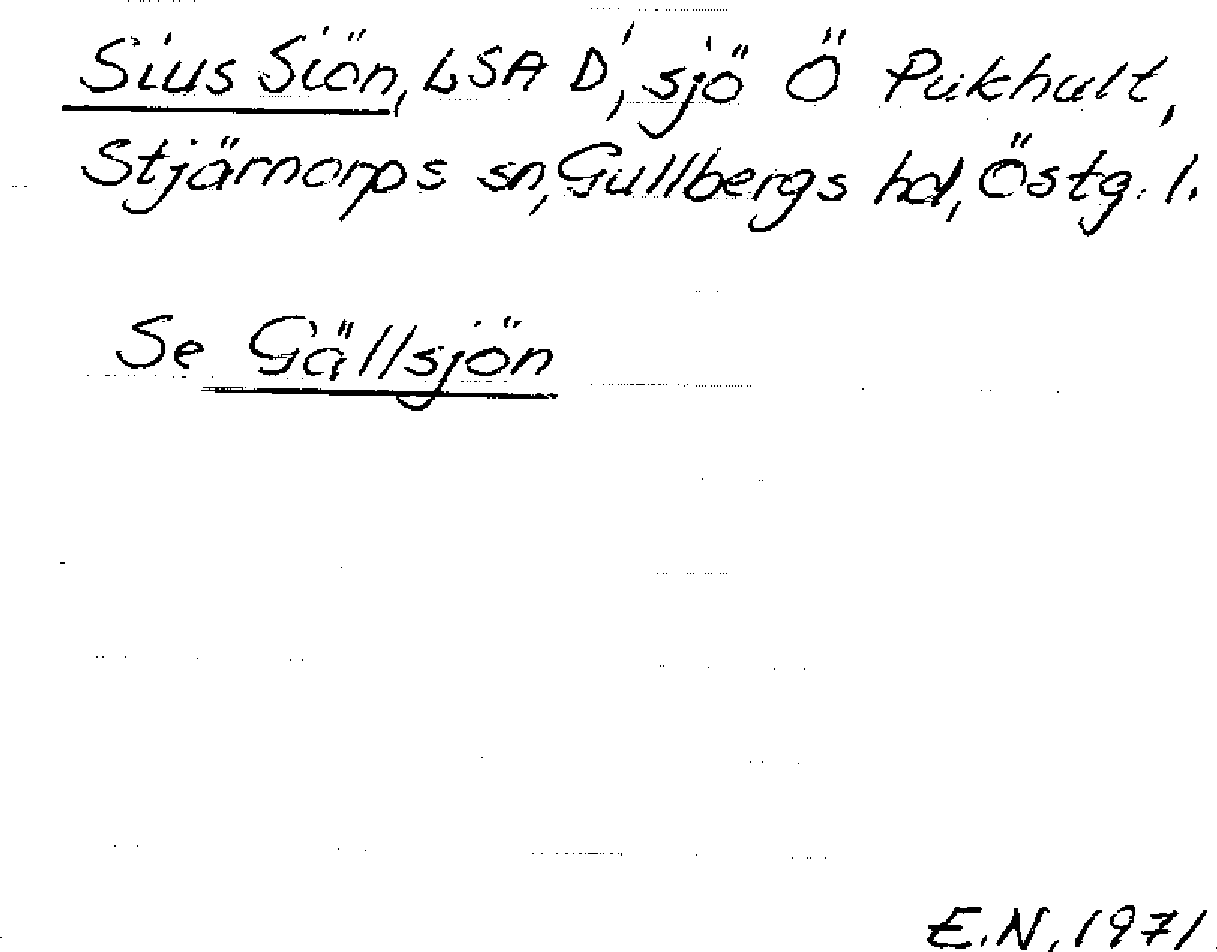 Sius Siön, LSA D', sjö Ö Pukhult,
Stjärnorps sn, Gullbergs hd, Östg. l.
Se Gällsjön
E.N, 1971